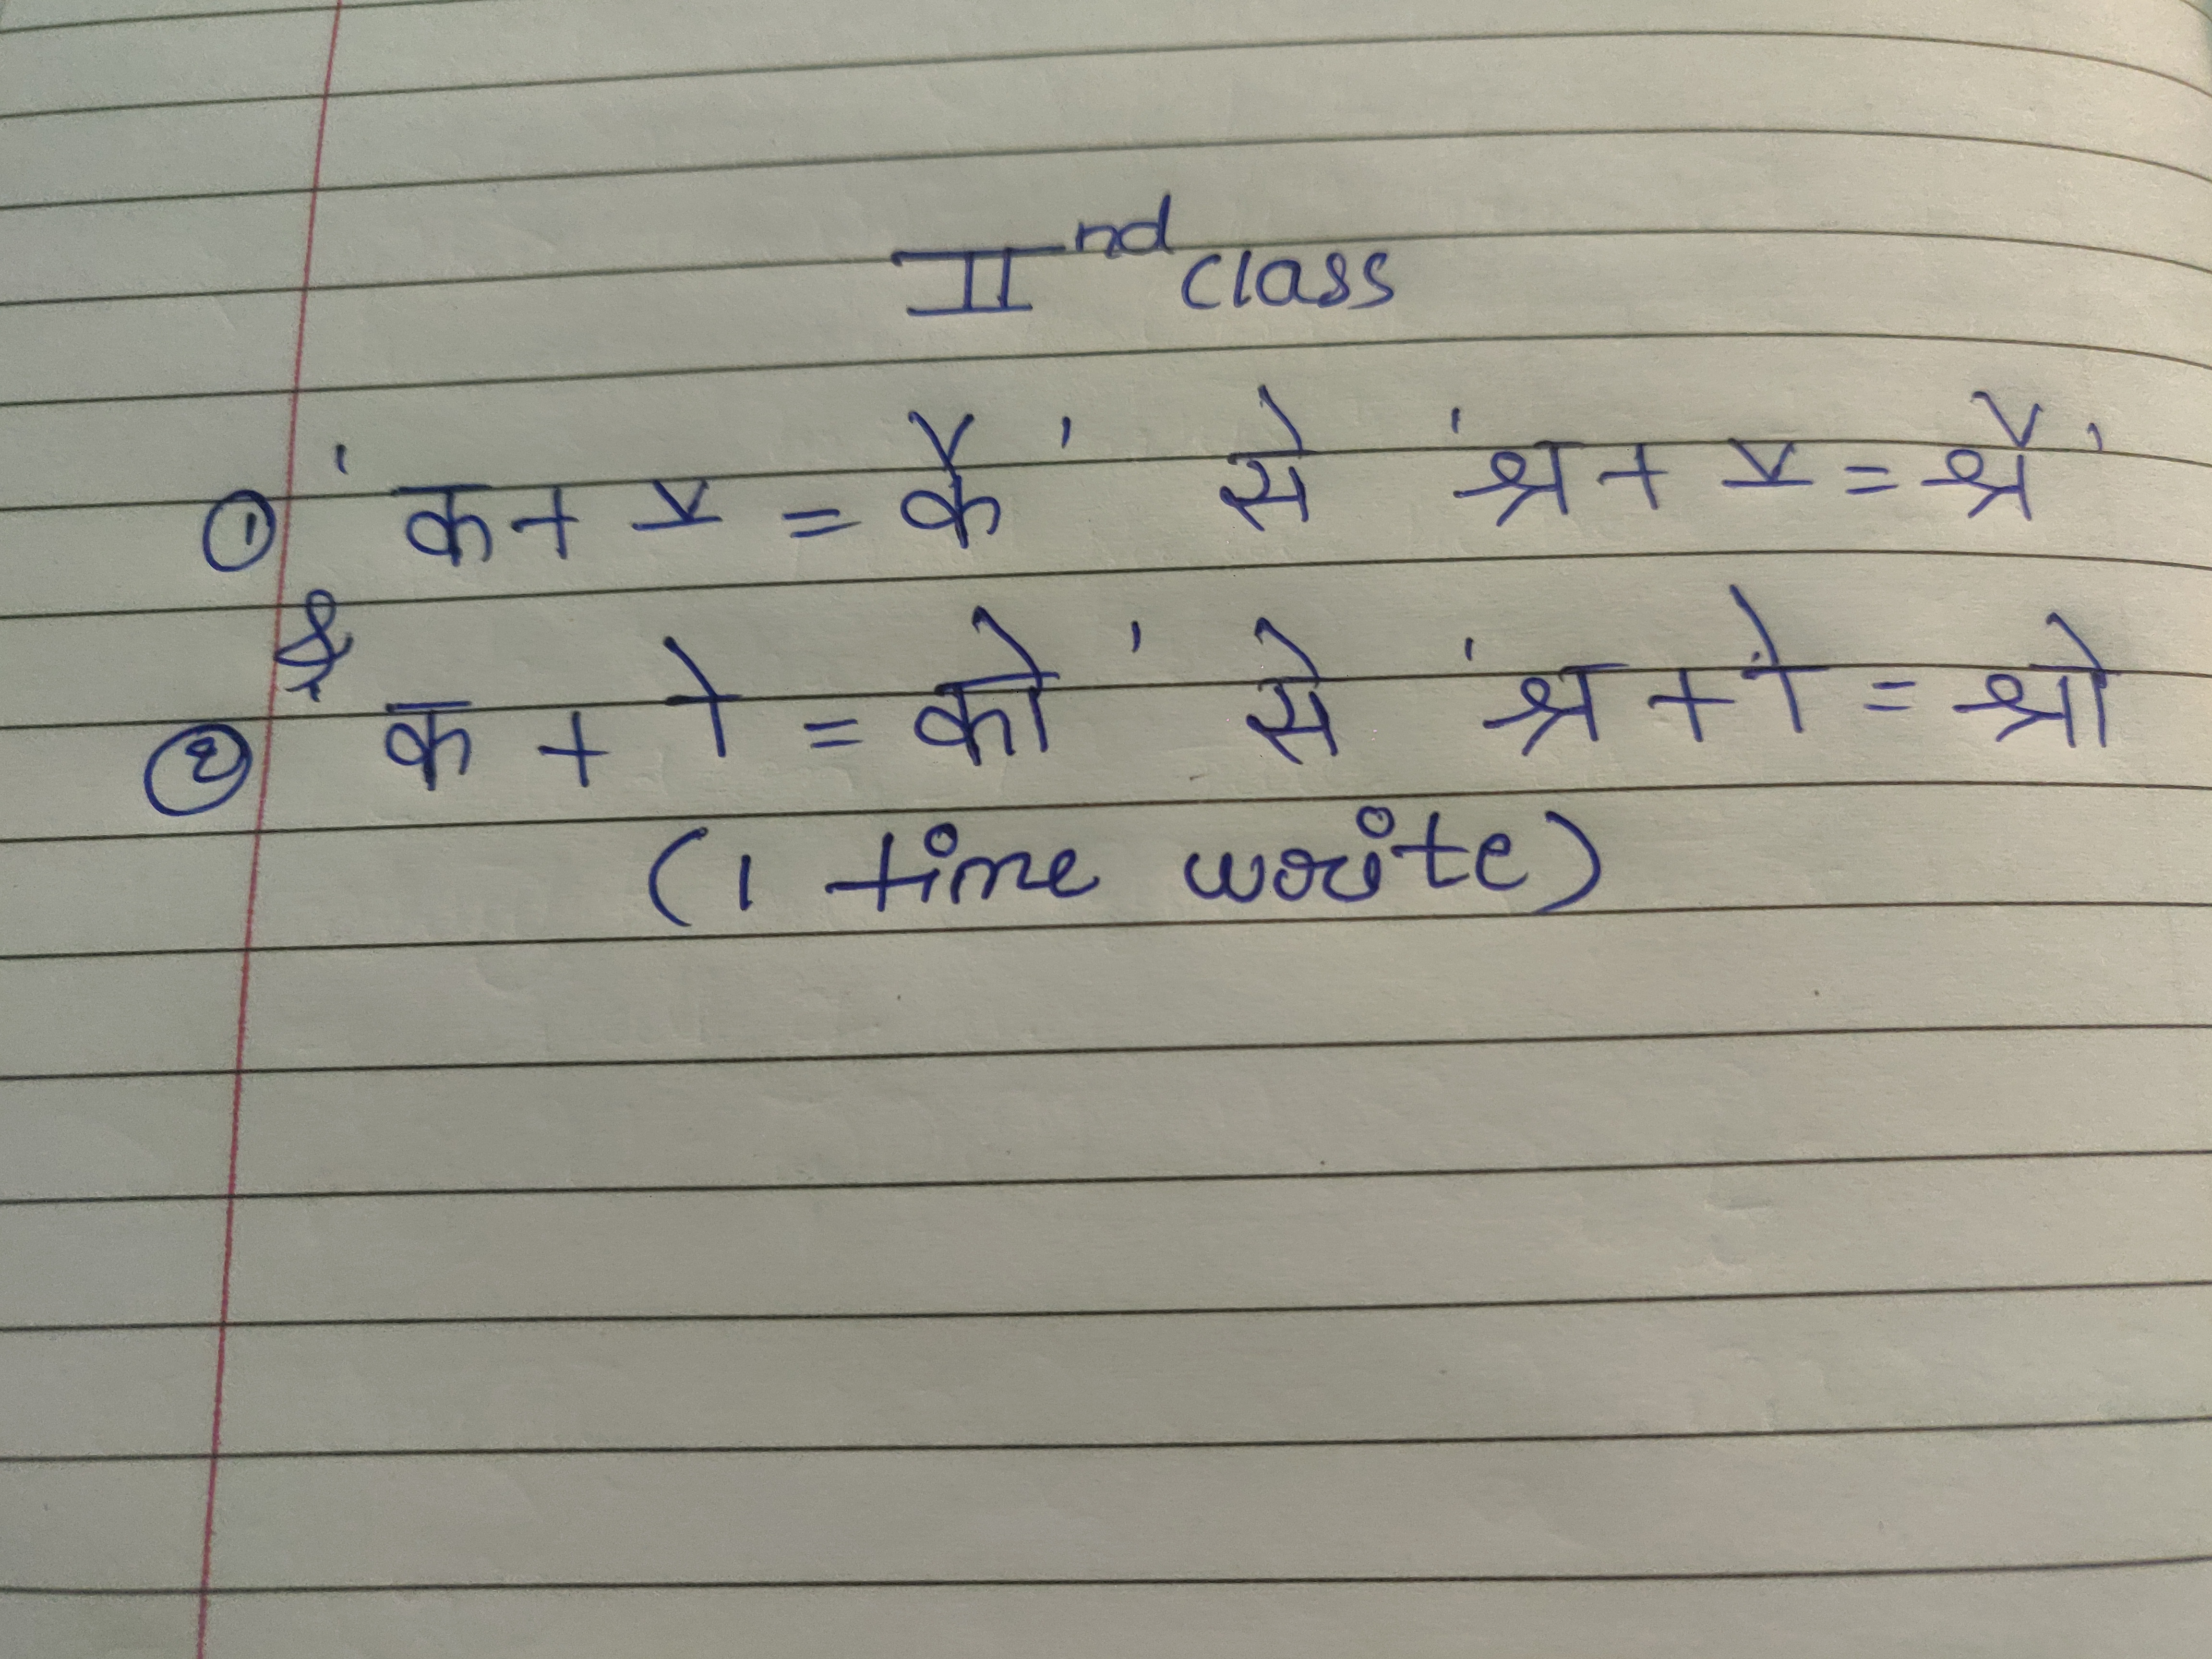 IInd class
① 'क + ै = कै' से 'श्र + ै = श्रै'
② क + ो = को' से 'श्र + ो = श्रो
(1 time write)